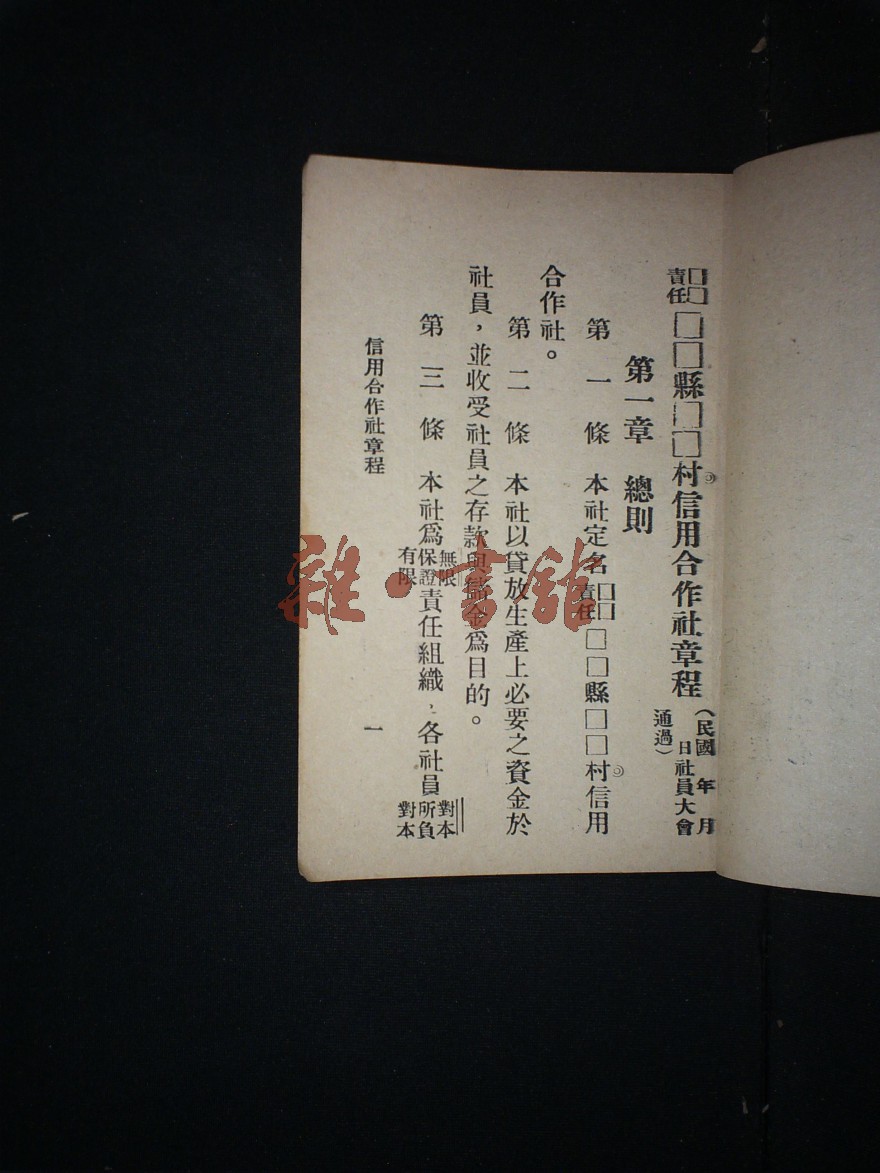 □□責任□□縣□□村◎信用合作社章程（民國　年　月　日社員大會通過）
第一章　總則
第一條　本社定名□□責任□□縣□□村◎信用
合作社。
第二條　本社以貸放生產上必要之資金於
社員，並收受社員之存款與儲金爲目的。
第三條　本社爲無限保證有限責任組織，各社員對本所負對本
信用合作社章程
一
雜·書館